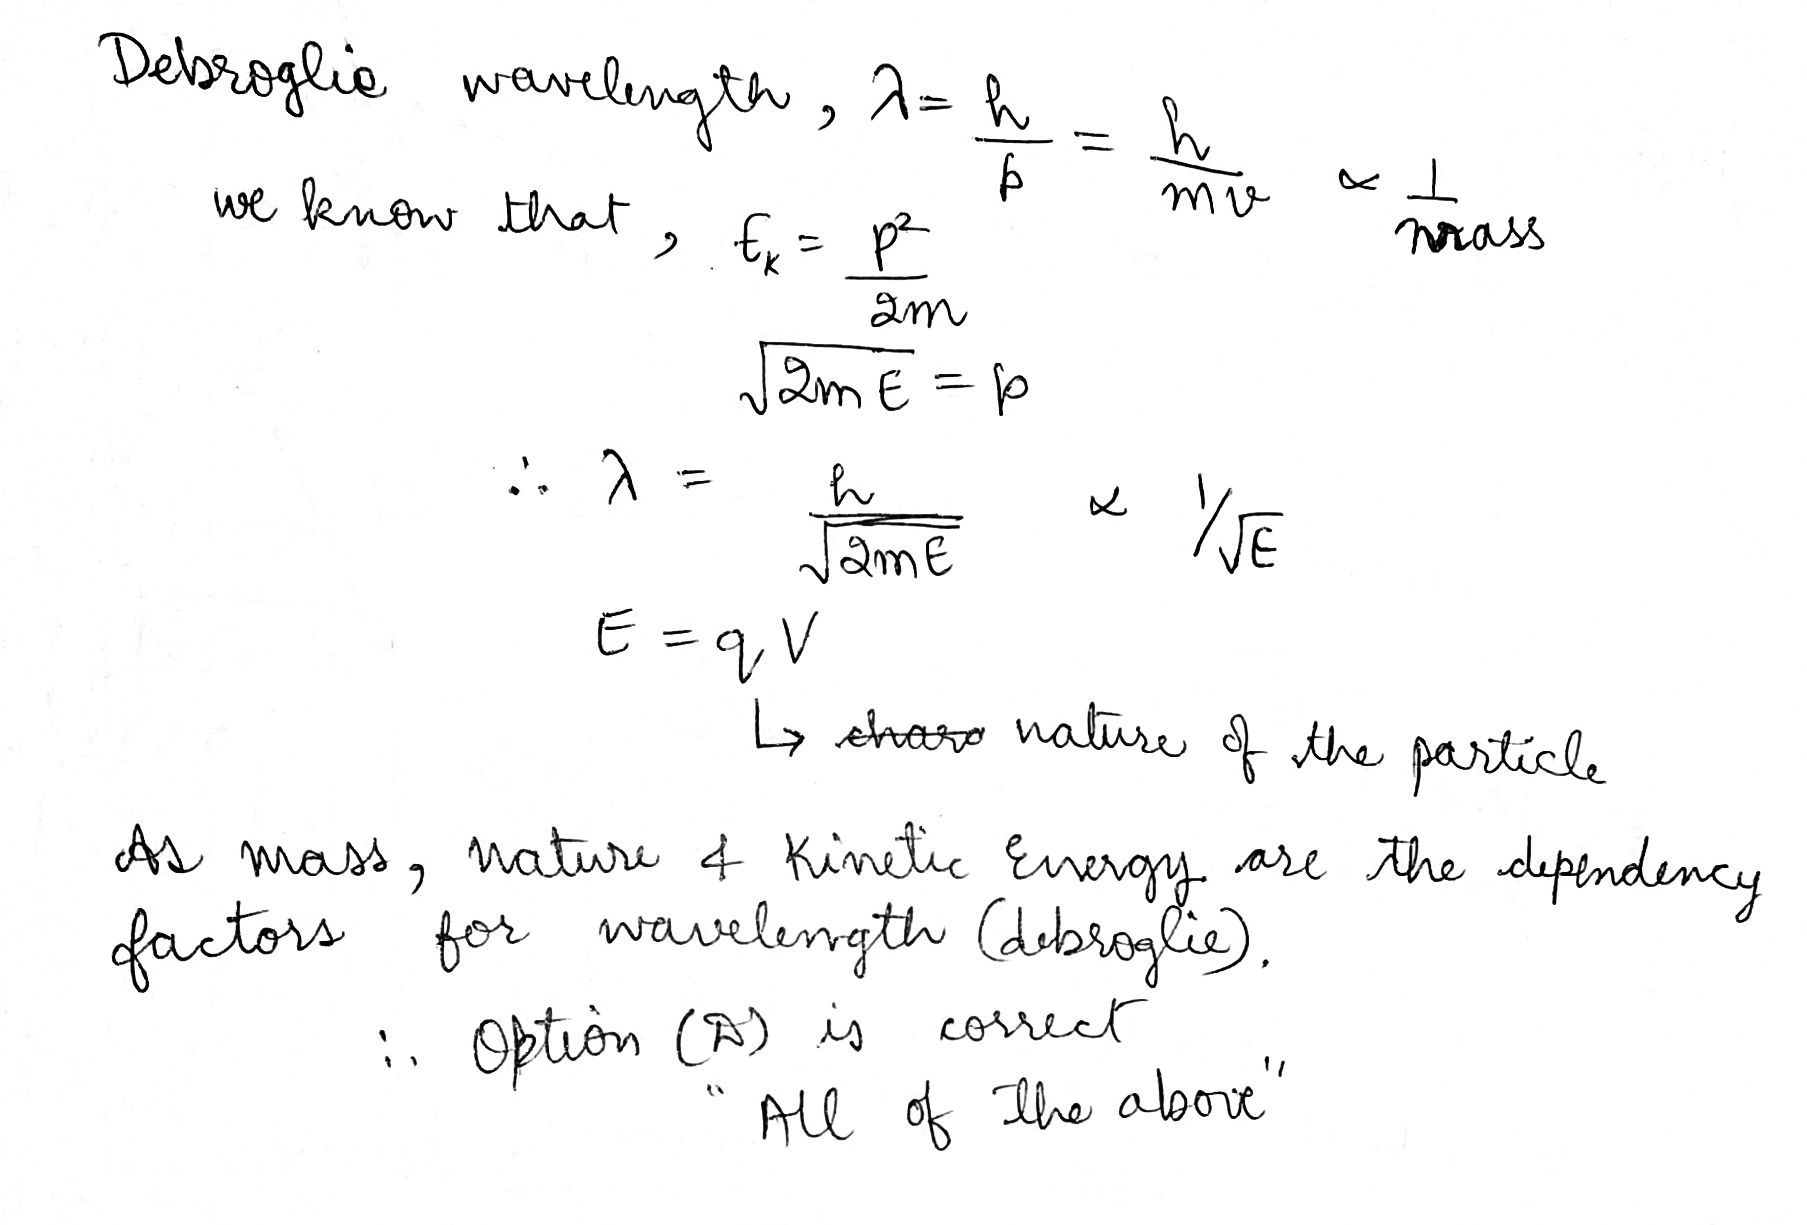 Debroglie wavelength, λ = h/p = h/mv ∝ 1/mass
we know that, Eₖ = p²/2m
√2mE = p
∴ λ = h/√2mE ∝ 1/√E
E = qV
↳ nature of the particle
As mass, nature & Kinetic Energy are the dependency
factors for wavelength (debroglie).
∴ Option (D) is correct
"All of the above"